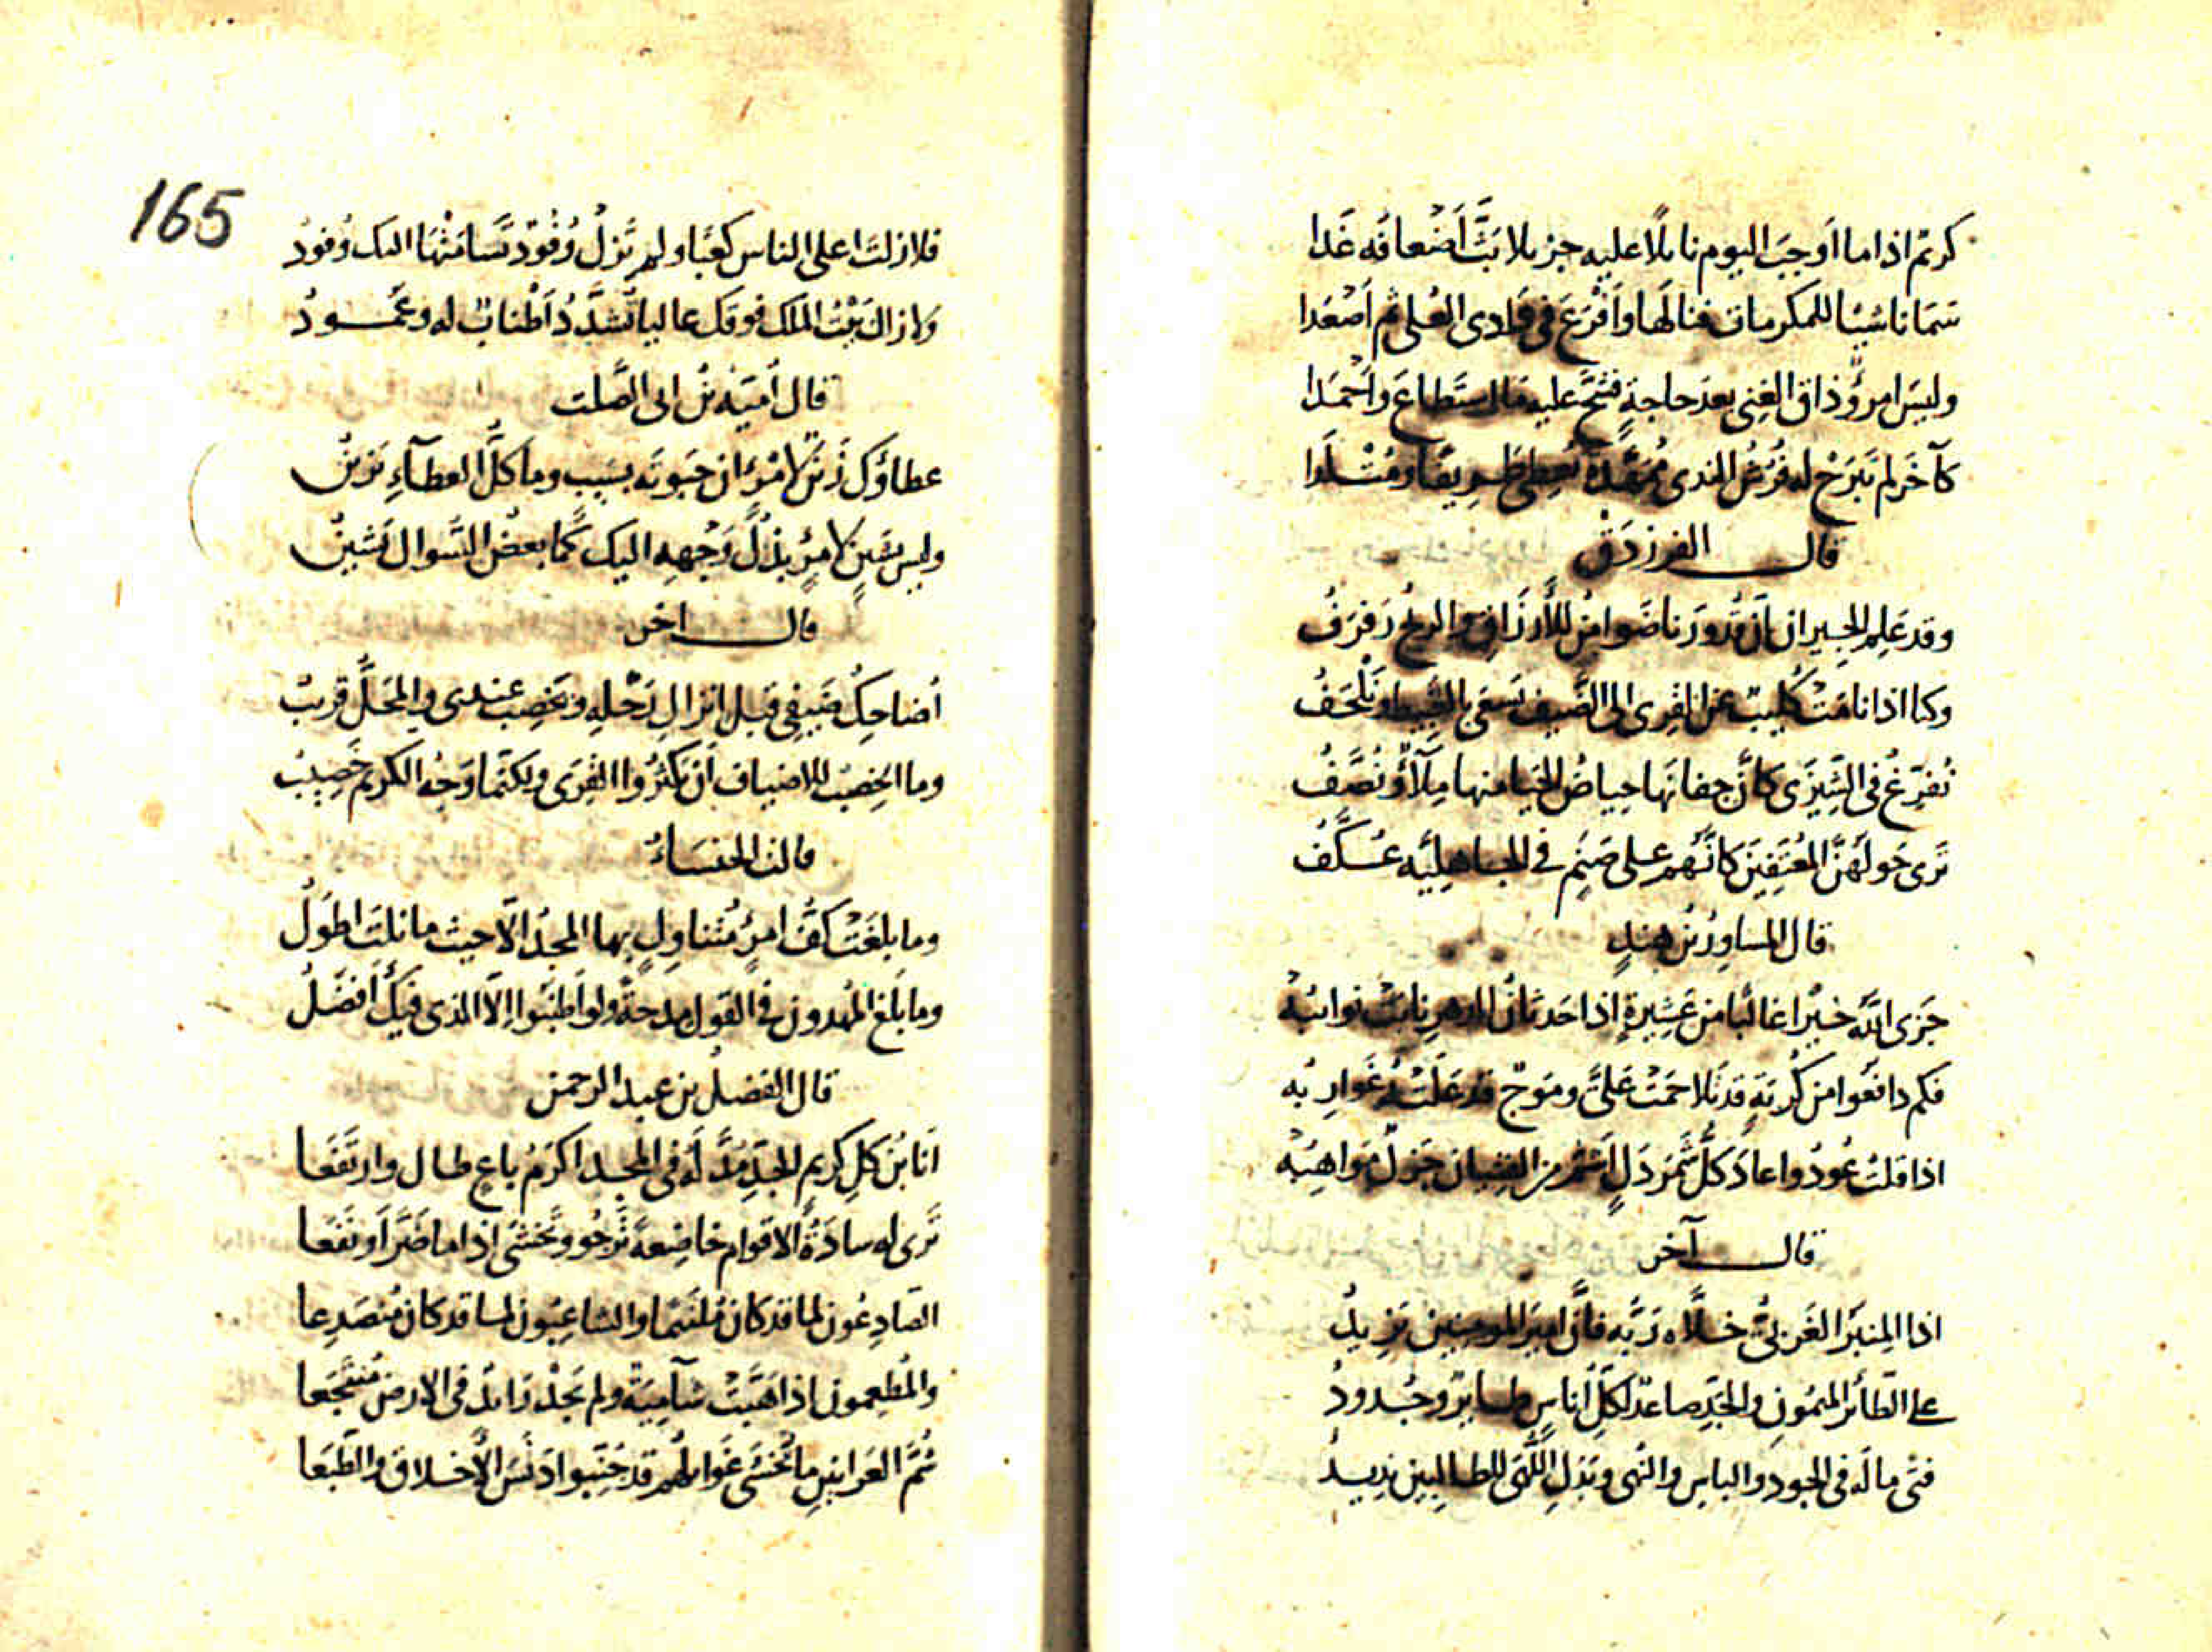 كريم اذا ما اوجب اليوم نايلا عليه جزيلا بَثَّ أَضْعافَه غَدا
سَمَا ناشيًا للمكرمات فنالَها وأَفْرَعَ في وادى العُلى ثم أَصْعَدا
وليسَ امرؤٌ ذاق الغِنى بعدَ حاجةٍ فشحَّ عليه مااستطاعَ واَجْمَدا
كآخَر لم تَبرَحْ له فُرُشُ الندى مُمَهَّدةً يُعطى طريفًا ومُتْلَدا
قال الفرزدق
وقد عَلِم الجيران أنّ قُدورَنا ضَوامنُ للأَرزَاقِ والريحُ زَفزَفُ
وكنا اذا نامَتْ كُليبٌ عن القِرى الى الضَّيف نَسعَى بالعَبيط ونَلْحَفُ
نُفرِّغُ فى الشِّيزَى كأنَّ جِفانَها حِياضُ الجَبَا منها مِلَآءٌ ونُصَّفُ
تَرى حَولَهنَّ المُعتَفِينَ كانَّهم على صَنَمٍ في الجاهليّه عُكَّفُ
قال المساورُ بن هندٍ
جَزى اللّه خيرًا غالبًا من عَشِيرةٍ اذا حَدثانُ الدهرِ نابَتْ نوائبُهْ
فكم دافَعُوا من كُربَةٍ قد تَلاحَمَتْ عَلىَّ ومَوجٌ قد عَلَتْنى غَوارِبُه
اذا قلتُ عُودُوا عادَ كلُّ شَمَردَلٍ أَشَمَّ من الفِتيان جَزلٌ مَواهِبُهْ
قال آخر
اذا المِنبَرُ الغَربىُّ خلَّاه رَبُّه فانَّ اميرَ المومنين يَزيدُ
على الطّائر الميمُونِ والجَدِّ صاعدٌ لكلِّ أُناسٍ طايرٌ وجُدودُ
فتًى ماله فى الجود والباس والنُّهى وبَذلِ اللُّهَى للطالبين نديدُ
165
فلا زلتَ اعلى الناس كعبًا ولم تَزلْ وُفُودٌ تُسامِيْهَا اليك وُفودُ
ولازال بَيْتُ الملك فوقك عاليا تُشدَّدُ أَطْنابٌ له وعَمُودُ
قال أميّه بن ابى الصَّلت
عطاؤك زَينٌ لامْرِئٍ ان حَبوتَه بسَيبٍ وما كلُّ العطآءِ يَزينُ
وليس بشَينٍ لامرئٍ بذلُ وَجْهِه اليك كما بعضُ السُّوال يَشينُ
قال اخر
أضاحِكُ ضَيفِى قبل انزالِ رَحْلِه ويَخصِبُ عندى والمحَلُّ قريبُ
وما الخِصْبُ للاضياف أنْ يَكثُرُوا القِرَى ولكنّما وَجْهُ الكريم خَصِيبُ
قالت الخنساءُ
وما بلغَتْ كَفُّ امرئٍ مُتَناوِلٍ بها المجدَ الّا حيث ما نلتَ اطوَلُ
وما بلَغ المُهدون في القول مِدحةً ولو أَطنَبُوا الّا الذى فيكَ أفضَلُ
قال الفضلُ بن عبد الرحمن
أنا بنُ كلِ كريم الجَدِّ مُدَّ لَه فى المجد اكرَمُ باعٍ طال وارتَفَعا
تَرى له سادَةُ الاقوام خاضِعةً تَرجُو وتَخشى اذا ما ضَرَّ أو نَفَعا
الصّادِعُون لما قد كان مُلتَئِمًا والشاعِبُون لما قد كان مُنصَدِعا
والمُطعِمون اذا هَبَّتْ شآمِيَةً ولم يَجدْ رائدٌ فى الارض مُنتَجَعا
شُمُّ العَرانين ما تُخشَى غَوايلُهم قد جُنِّبوا دَنَسَ الأخلاق والطَّبَعا